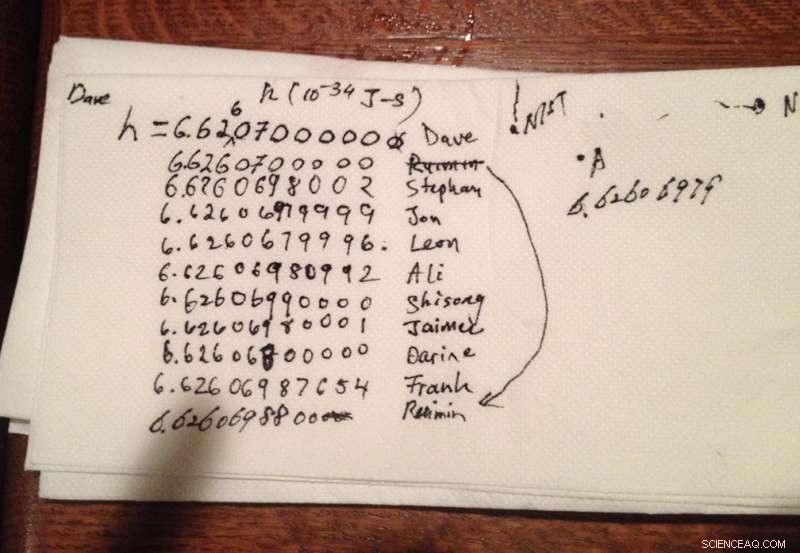 Dave
h (10-34 J-S)
6
h = 6.62070000000 Dave
6.6260700000 Ruimin
6.6260698002 Stephan
6.62606979999 Jon
6.62606799996. Leon
6.62606980992 Ali
6.62606990000 Shisong
6.62606980001 Jaimec
6.62606800000 Darine
6.62606987654 Frank
6.62606988000 Ruimin
NIST
N
A
6.62606979
SCIENCEAQ.COM